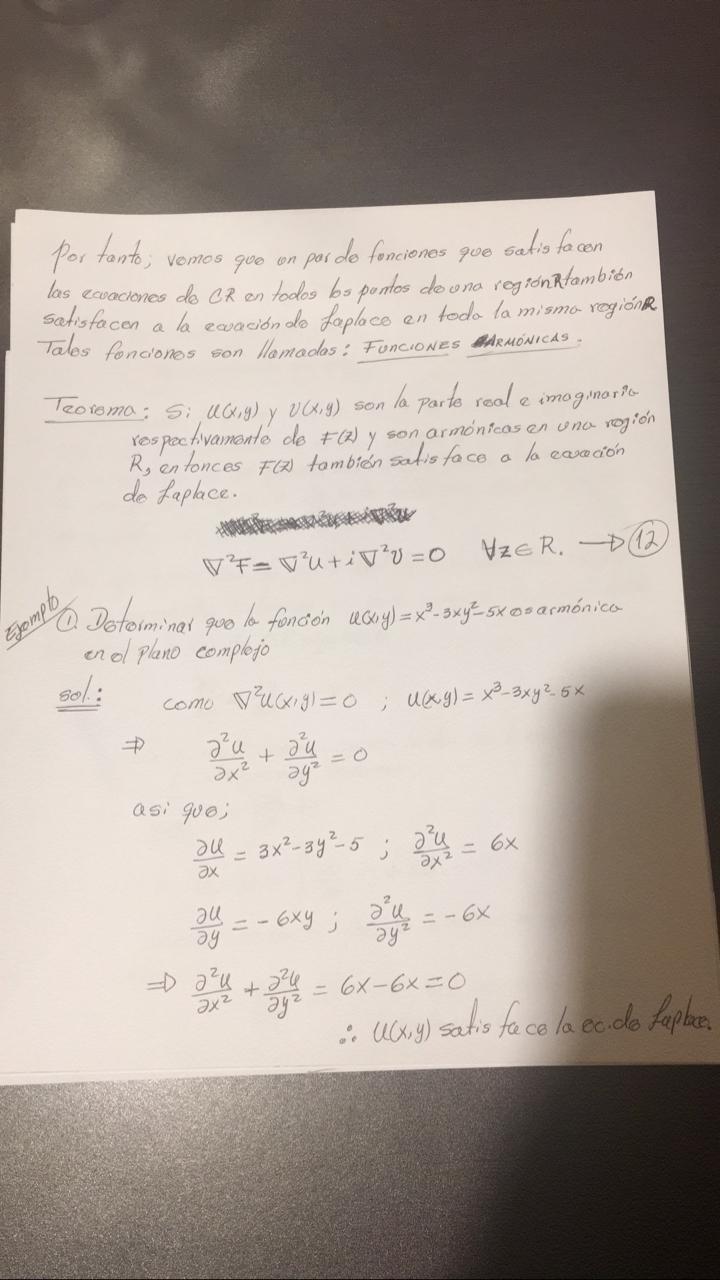 Por tanto; vemos que un par de funciones que satisfacen
las ecuaciones de CR en todos los puntos de una región R también
satisfacen a la ecuación de Laplace en toda la misma región R
Tales funciones son llamadas: FUNCIONES ARMÓNICAS.
Teorema: Si U(x,y) y V(x,y) son la parte real e imaginaria
respectivamente de F(z) y son armónicas en una región
R, entonces F(z) también satisface a la ecuación
de Laplace.
∇²F = ∇²U + i∇²V = 0 ∀z∈R. → 12
Ejemplo ①. Determinar que la función U(x,y) = x³-3xy²-5x es armónica
en el plano complejo
sol.: como ∇²U(x,y) = 0 ; U(x,y) = x³-3xy²-5x
⇒ ∂²U/∂x² + ∂²U/∂y² = 0
asi que;
∂U/∂x = 3x²-3y²-5 ; ∂²U/∂x² = 6x
∂U/∂y = -6xy ; ∂²U/∂y² = -6x
⇒ ∂²U/∂x² + ∂²U/∂y² = 6x-6x = 0
∴ U(x,y) satisface la ec. de Laplace.